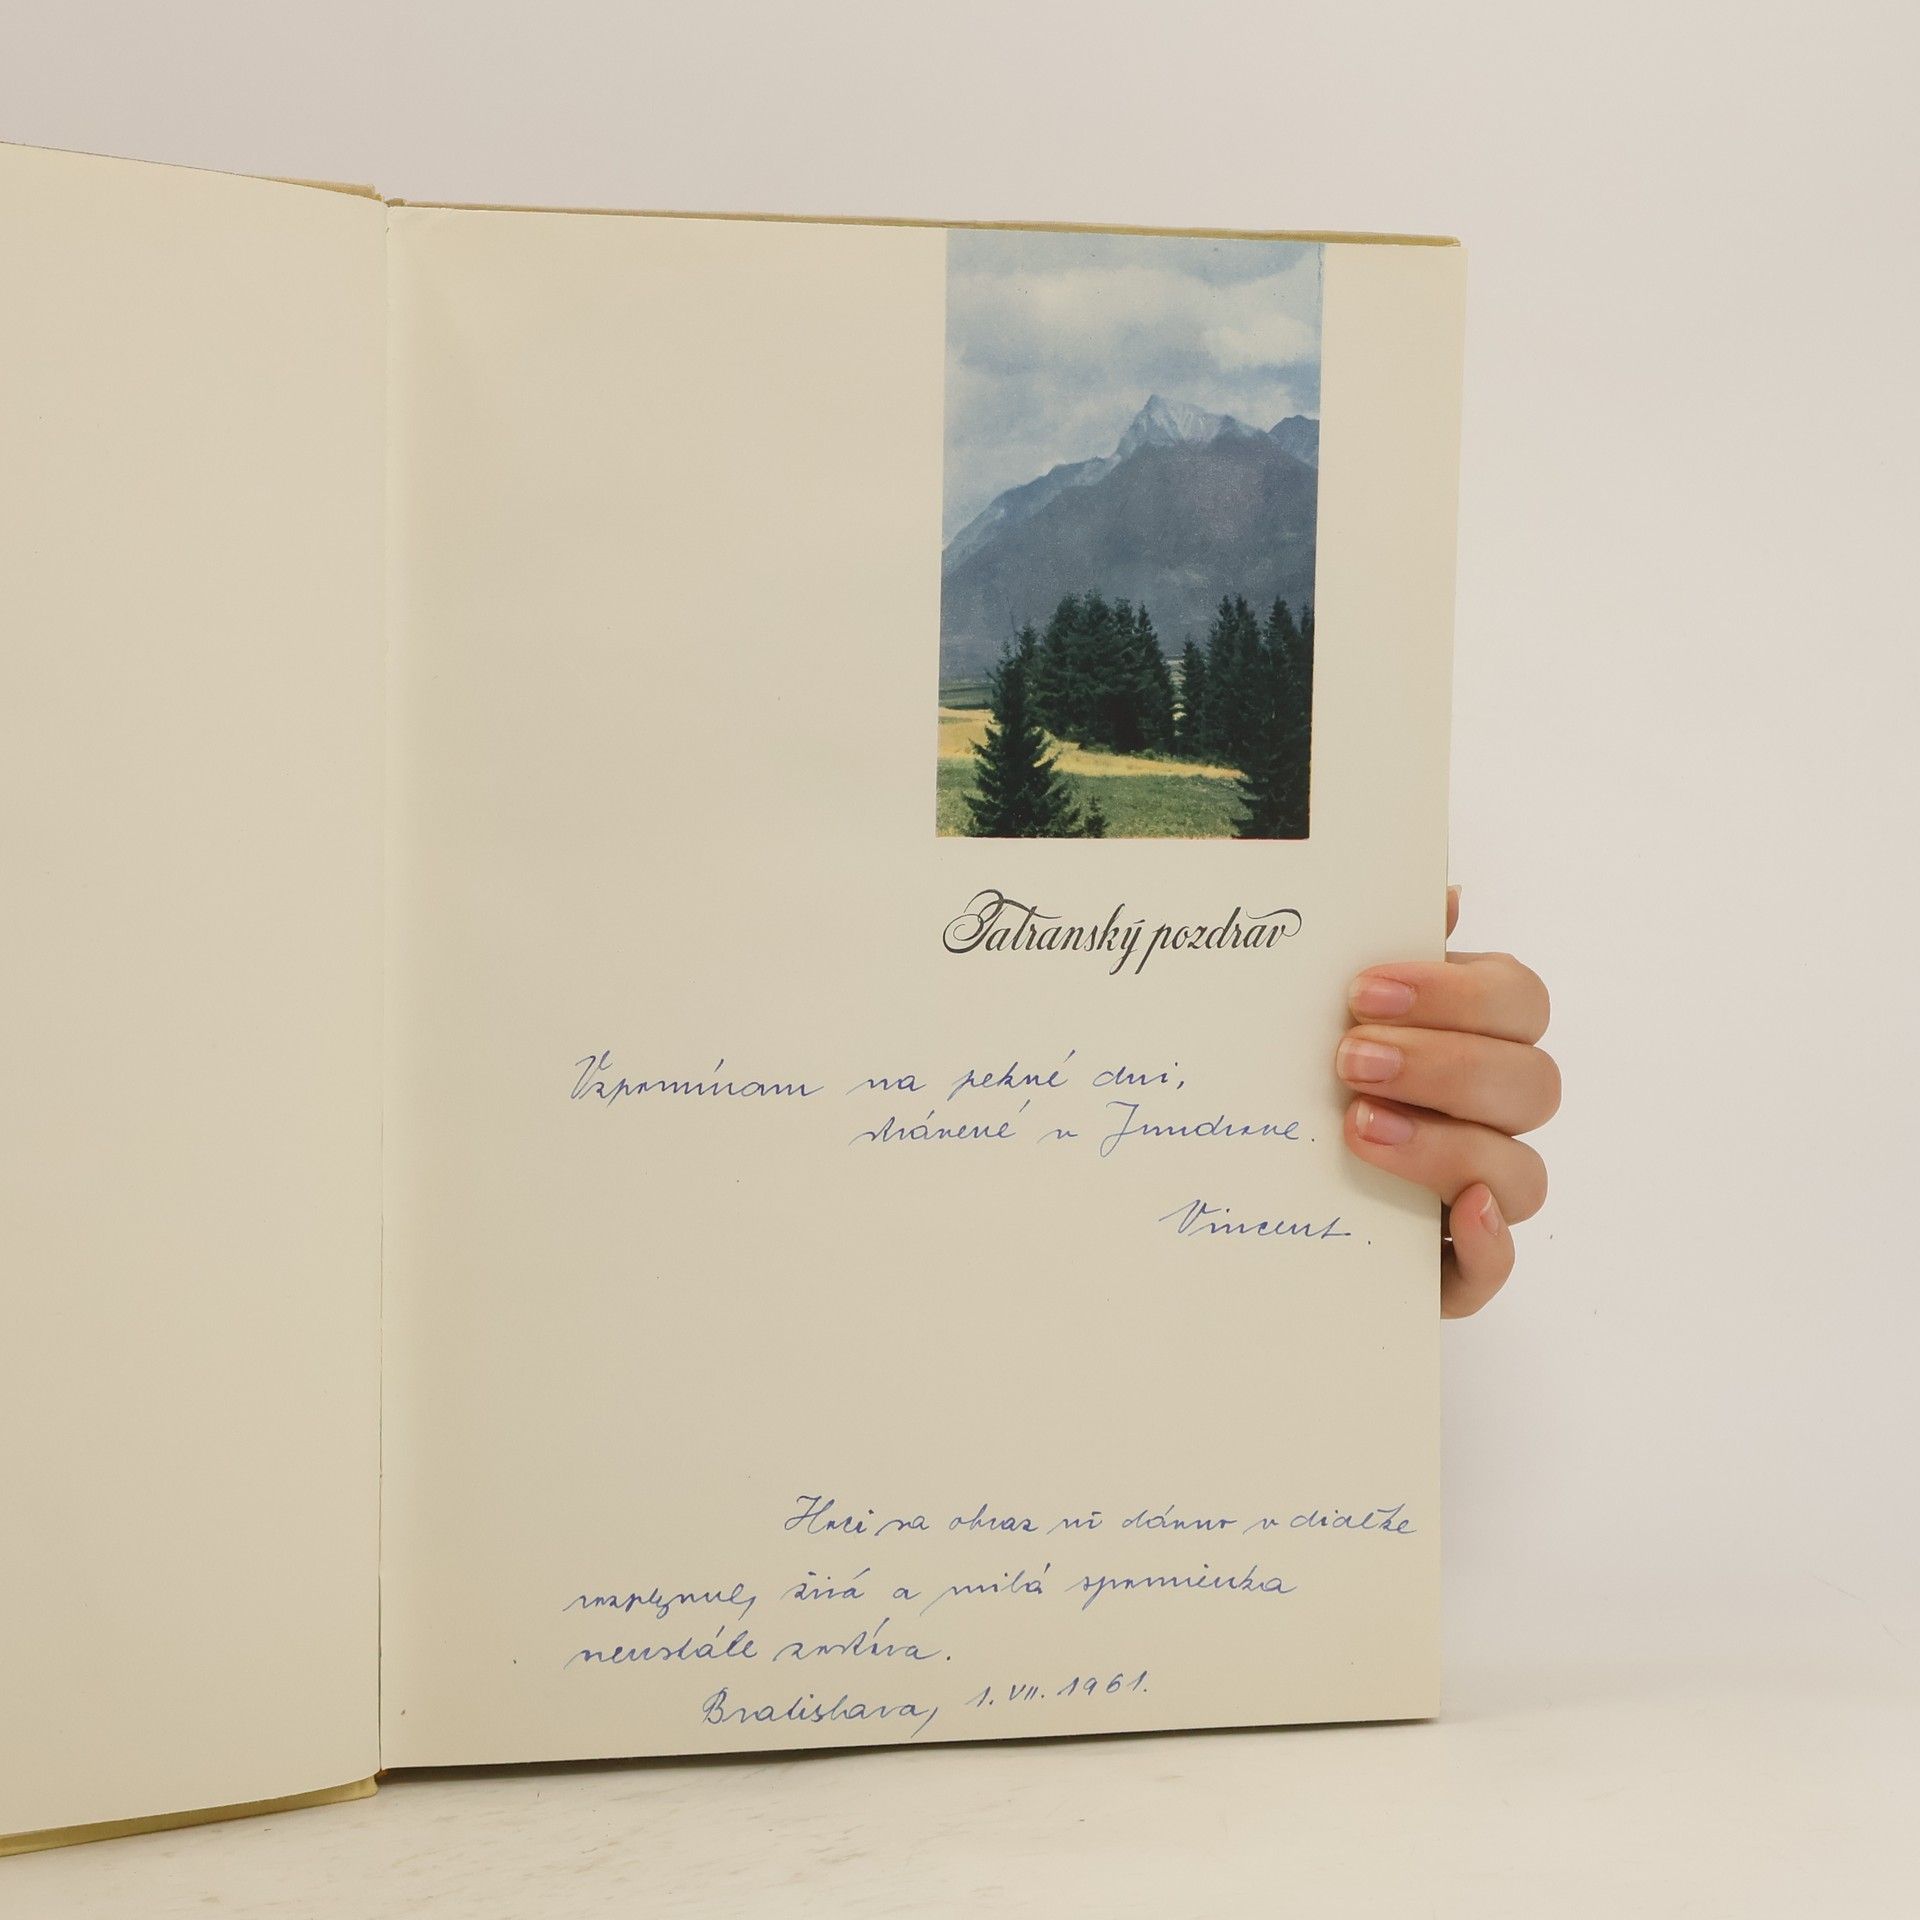 Tatranský pozdrav
Vzpomínam na pekné dni,
strávené v Jundrove.
Vincent.
Hoci sa obraz už dávno v diaľke
rozplynul, živá a milá spomienka
neustále zostáva.
Bratislava, 1. VII. 1961.